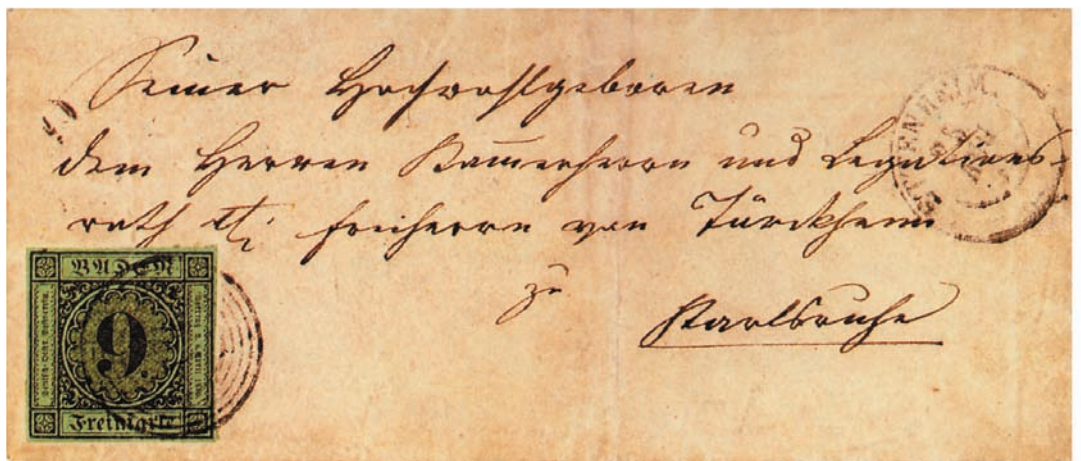 Seiner Hochwohlgeboren
dem Herren Kammerherrn und Legations-
rath Freiherrn von Türckheim
zu
Karlsruhe
BADEN
9.
Freimarke
ETTENHEIM.